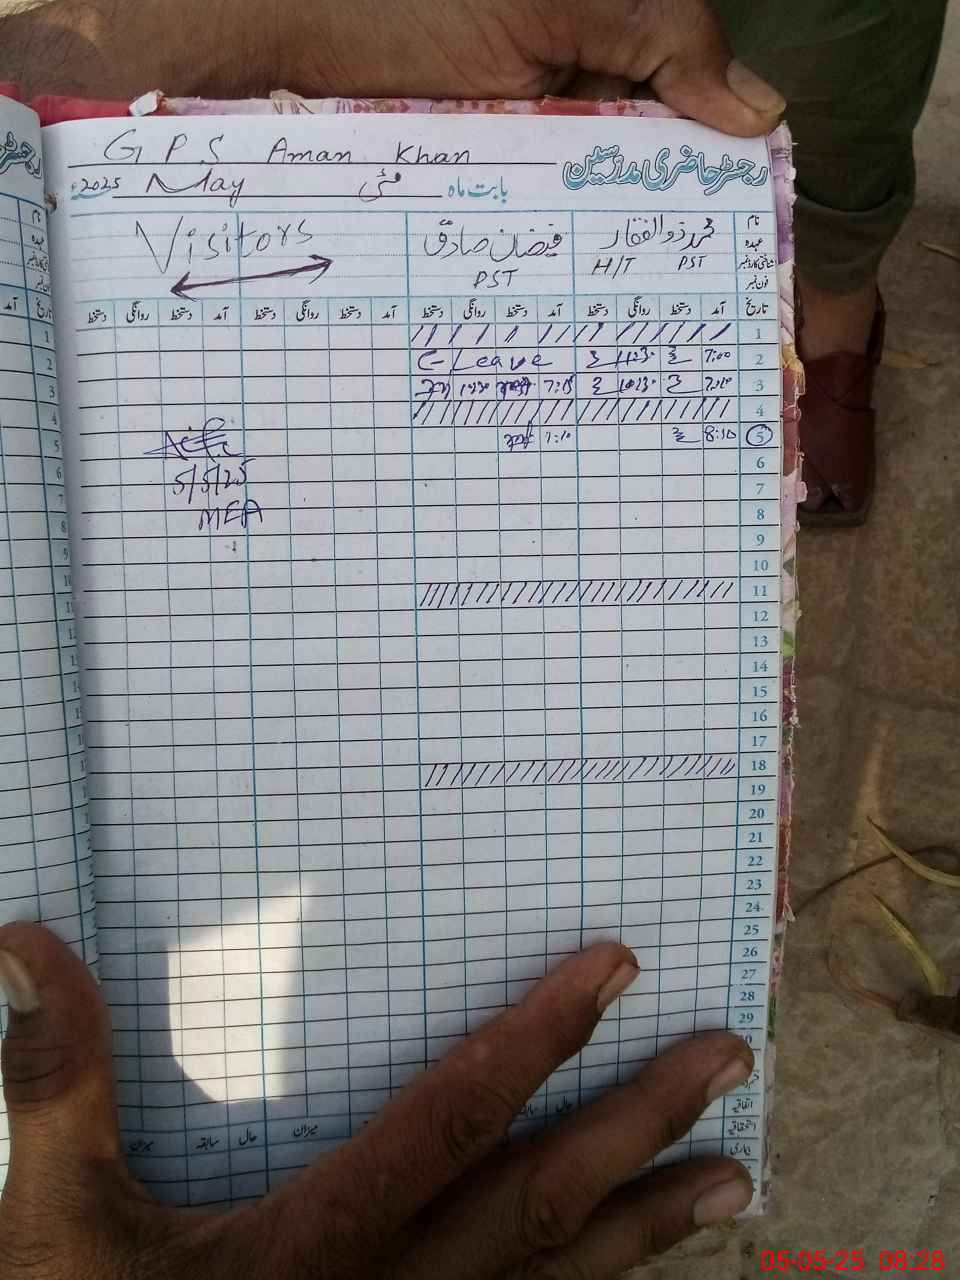 G P S Aman Khan
رجسٹر حاضری مدرسین
2025 May مئی بابت ماہ
نام
عہدہ
شناختی کارڈ نمبر
فون نمبر
محمد ذوالفقار
H/T PST
فیضان صادق
PST
Visitors
تاریخ آمد دستخط روانگی دستخط آمد دستخط روانگی دستخط آمد دستخط روانگی دستخط آمد دستخط روانگی دستخط
1
2 7:00 11:30 Leave
3 7:10 10:30 7:15
4
5 8:10 7:10
5/5/25
MEA
6
7
8
9
10
11
12
13
14
15
16
17
18
19
20
21
22
23
24
25
26
27
28
29
اتفاقیہ
استحقاقیہ
بیماری
حال سابقہ میزان حال سابقہ میزان
05-05-25 08:28